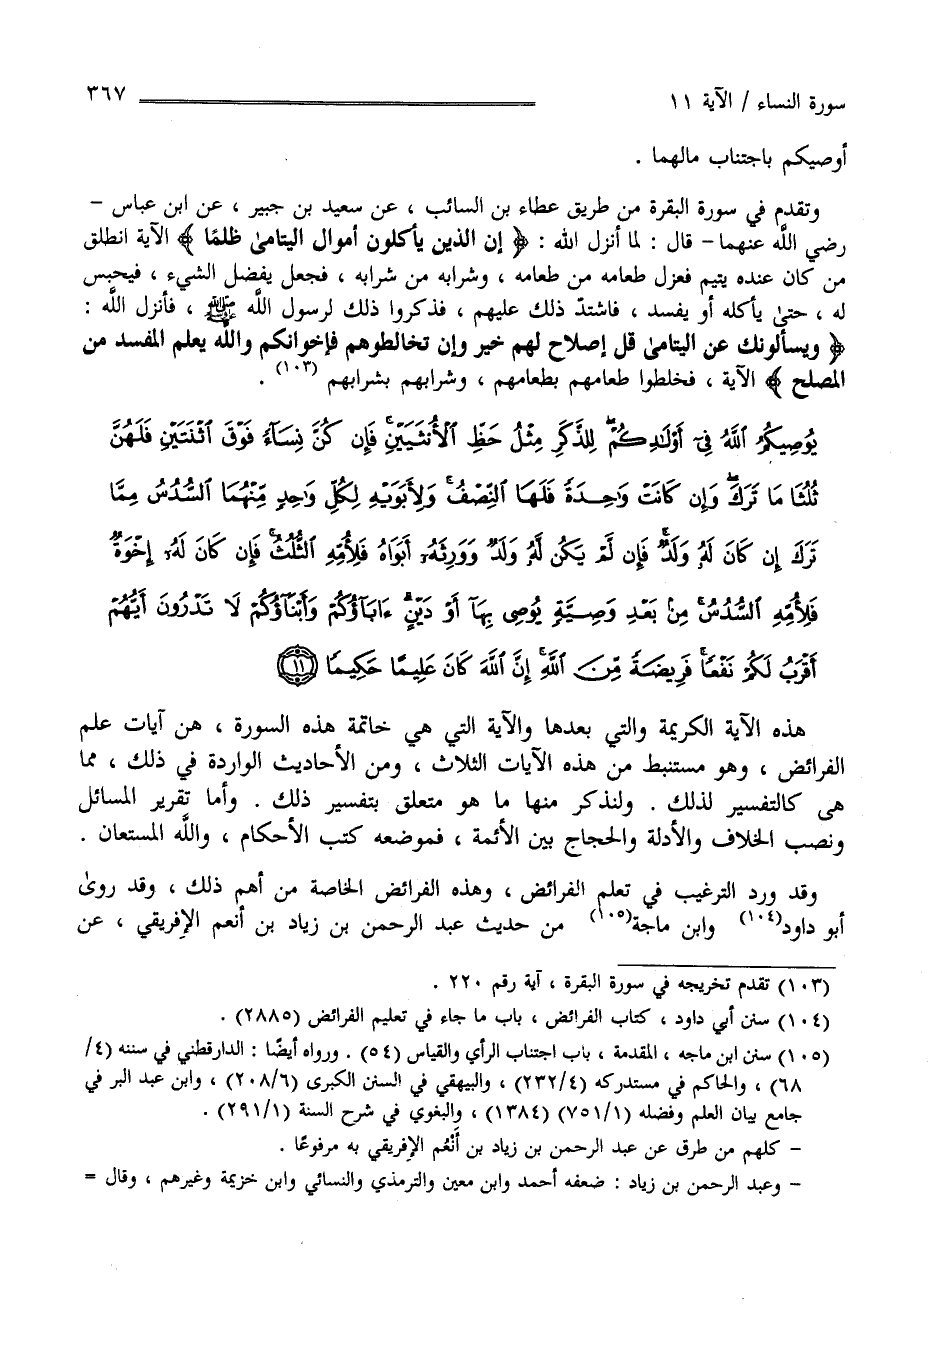 سورة النساء / الآية ١١ ٣٦٧
أوصيكم باجتناب مالهما .
وتقدم في سورة البقرة من طريق عطاء بن السائب ، عن سعيد بن جبير ، عن ابن عباس -
رضي اللَّه عنهما - قال : لما أنزل الله : ﴿ إن الذين يأكلون أموال اليتامىٰ ظلمًا ﴾ الآية انطلق
من كان عنده يتيم فعزل طعامه من طعامه ، وشرابه من شرابه ، فجعل يفضل الشيء ، فيحبس
له ، حتىٰ يأكله أو يفسد ، فاشتدّ ذلك عليهم ، فذكروا ذلك لرسول اللَّه ﷺ ، فأنزل اللَّه :
﴿ ويسألونك عن اليتامىٰ قل إصلاح لهم خير وإن تخالطوهم فإخوانكم واللَّه يعلم المفسد من
المصلح ﴾ الآية ، فخلطوا طعامهم بطعامهم ، وشرابهم بشرابهم (١٠٣) .
يُوصِيكُمُ ٱللَّهُ فِىٓ أَوْلَٰدِكُمْ ۖ لِلذَّكَرِ مِثْلُ حَظِّ ٱلْأُنثَيَيْنِ ۚ فَإِن كُنَّ نِسَآءً فَوْقَ ٱثْنَتَيْنِ فَلَهُنَّ
ثُلُثَا مَا تَرَكَ ۖ وَإِن كَانَتْ وَٰحِدَةً فَلَهَا ٱلنِّصْفُ ۚ وَلِأَبَوَيْهِ لِكُلِّ وَٰحِدٍ مِّنْهُمَا ٱلسُّدُسُ مِمَّا
تَرَكَ إِن كَانَ لَهُۥ وَلَدٌ ۚ فَإِن لَّمْ يَكُن لَّهُۥ وَلَدٌ وَوَرِثَهُۥٓ أَبَوَاهُ فَلِأُمِّهِ ٱلثُّلُثُ ۚ فَإِن كَانَ لَهُۥٓ إِخْوَةٌ
فَلِأُمِّهِ ٱلسُّدُسُ ۚ مِنۢ بَعْدِ وَصِيَّةٍ يُوصِى بِهَآ أَوْ دَيْنٍ ۗ ءَابَآؤُكُمْ وَأَبْنَآؤُكُمْ لَا تَدْرُونَ أَيُّهُمْ
أَقْرَبُ لَكُمْ نَفْعًا ۚ فَرِيضَةً مِّنَ ٱللَّهِ ۗ إِنَّ ٱللَّهَ كَانَ عَلِيمًا حَكِيمًا ١١
هذه الآية الكريمة والتي بعدها والآية التي هي خاتمة هذه السورة ، هن آيات علم
الفرائض ، وهو مستنبط من هذه الآيات الثلاث ، ومن الأحاديث الواردة في ذلك ، مما
هى كالتفسير لذلك . ولنذكر منها ما هو متعلق بتفسير ذلك . وأما تقرير المسائل
ونصب الخلاف والأدلة والحجاج بين الأئمة ، فموضعه كتب الأحكام ، واللَّه المستعان .
وقد ورد الترغيب في تعلم الفرائض ، وهذه الفرائض الخاصة من أهم ذلك ، وقد روىٰ
أبو داود(١٠٤) وابن ماجة(١٠٥) من حديث عبد الرحمن بن زياد بن أنعم الإفريقي ، عن
(١٠٣) تقدم تخريجه في سورة البقرة ، آية رقم ٢٢٠ .
(١٠٤) سنن أبي داود ، كتاب الفرائض ، باب ما جاء في تعليم الفرائض (٢٨٨٥) .
(١٠٥) سنن ابن ماجه ، المقدمة ، باب اجتناب الرأي والقياس (٥٤) . ورواه أيضًا : الدارقطني في سننه (٤/
٦٨) ، والحاكم في مستدركه (٢٣٢/٤) ، والبيهقي في السنن الكبرى (٢٠٨/٦) ، وابن عبد البر في
جامع بيان العلم وفضله (٧٥١/١) (١٣٨٤) ، والبغوي في شرح السنة (٢٩١/١) .
- كلهم من طرق عن عبد الرحمن بن زياد بن أَنْعُم الإفريقي به مرفوعًا .
- وعبد الرحمن بن زياد : ضعفه أحمد وابن معين والترمذي والنسائي وابن خزيمة وغيرهم ، وقال =